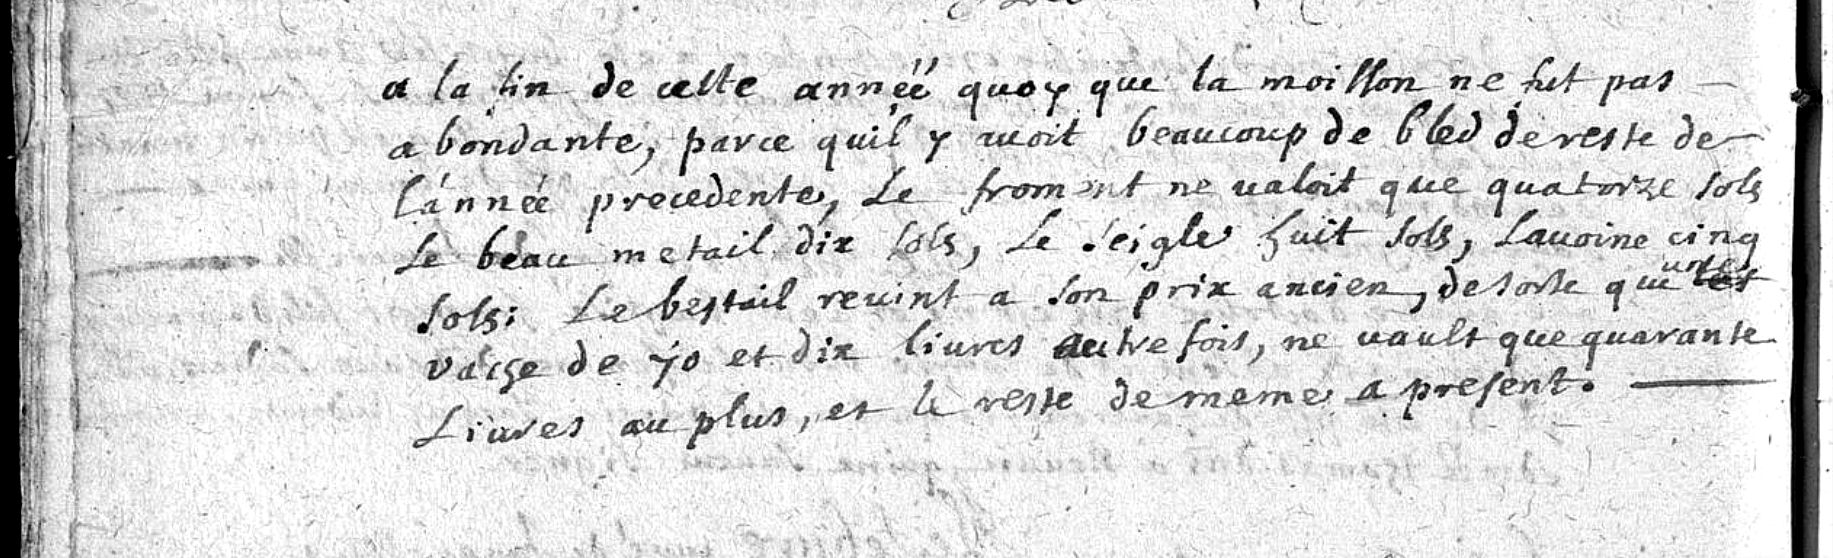 a la fin de cette année quoy que la moisson ne fut pas
abondante, parce quil y avoit beaucoup de bled de reste de
l'année precedente, Le froment ne valoit que quatorze sols
Le beau metail dix sols, Le seigle huit sols, Lavoine cinq
sols; Le bestail revint a son prix ancien, de sorte qu'une
vache de 70 et dix livres autre fois, ne vault que quarante
Livres au plus, et le reste de meme a present.